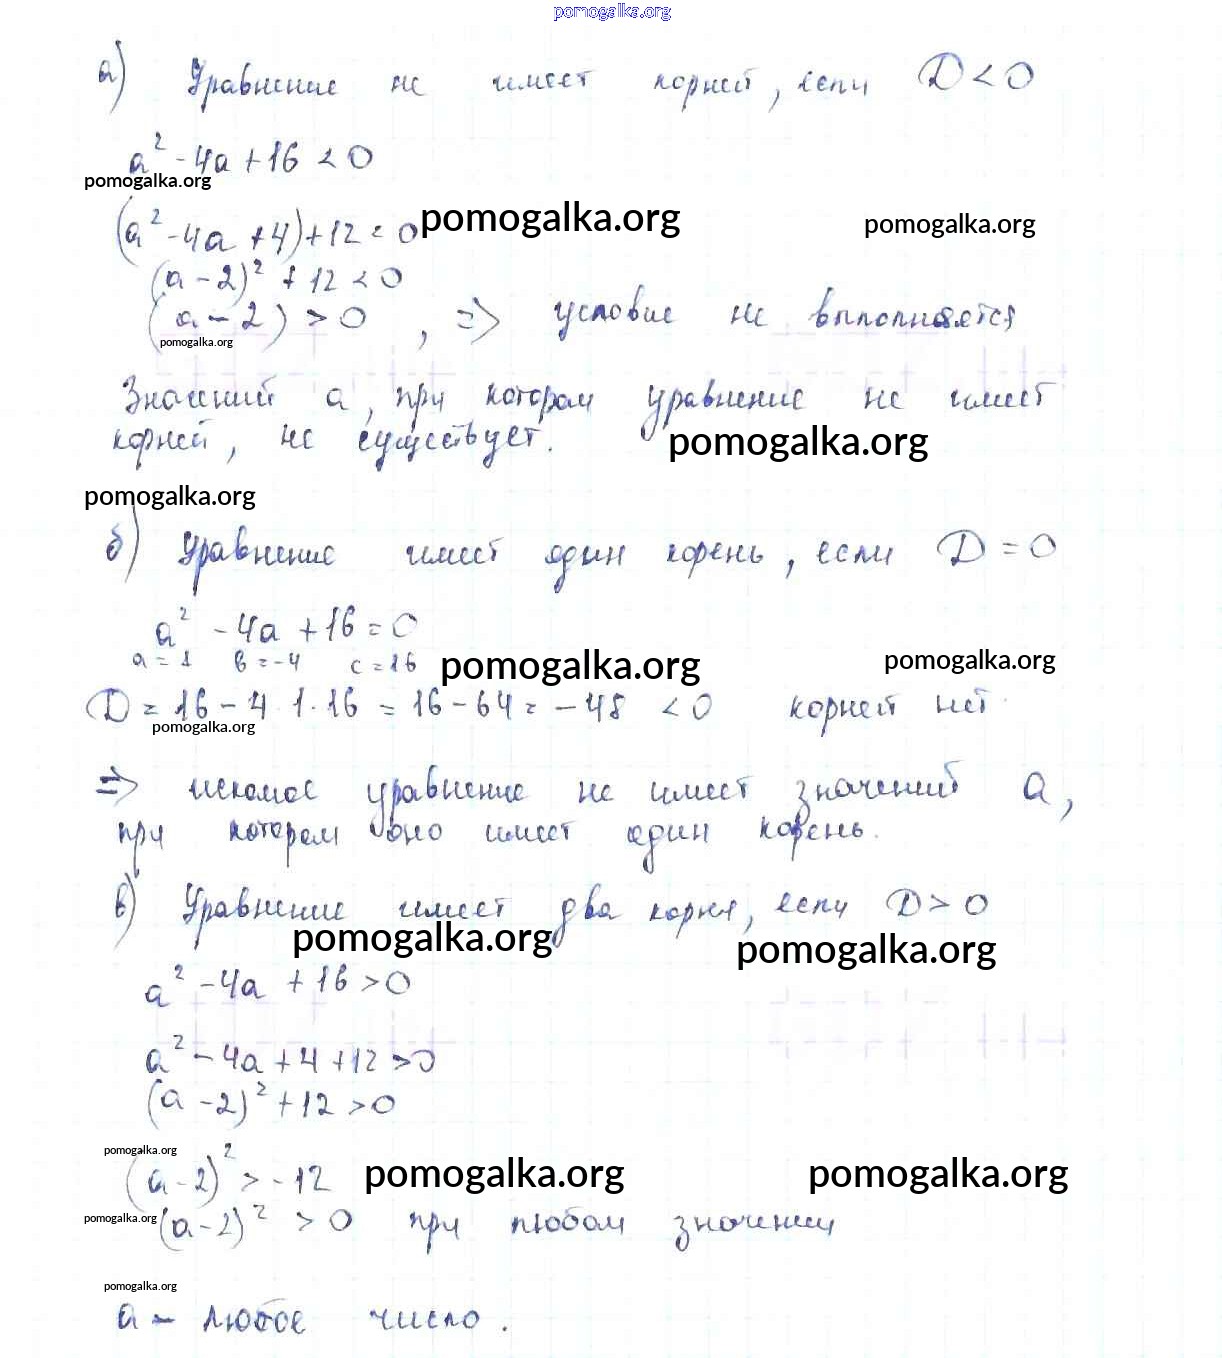 pomogalka.org
а) Уравнение не имеет корней, если D < 0
a² - 4a + 16 < 0
pomogalka.org
(a² - 4a + 4) + 12 < 0 pomogalka.org pomogalka.org
(a - 2)² + 12 < 0
(a - 2) > 0, => условие не выполняется
pomogalka.org
Значений a, при котором уравнение не имеет
корней, не существует. pomogalka.org
pomogalka.org
б) Уравнение имеет один корень, если D = 0
a² - 4a + 16 = 0
a = 1 в = -4 c = 16 pomogalka.org pomogalka.org
D = 16 - 4·1·16 = 16 - 64 = -48 < 0 корней нет.
pomogalka.org
=> искомое уравнение не имеет значений a,
при котором оно имеет один корень.
в) Уравнение имеет два корня, если D > 0
pomogalka.org pomogalka.org
a² - 4a + 16 > 0
a² - 4a + 4 + 12 > 0
(a - 2)² + 12 > 0
pomogalka.org
(a - 2)² > -12 pomogalka.org pomogalka.org
pomogalka.org (a - 2)² > 0 при любом значении
pomogalka.org
a - любое число.